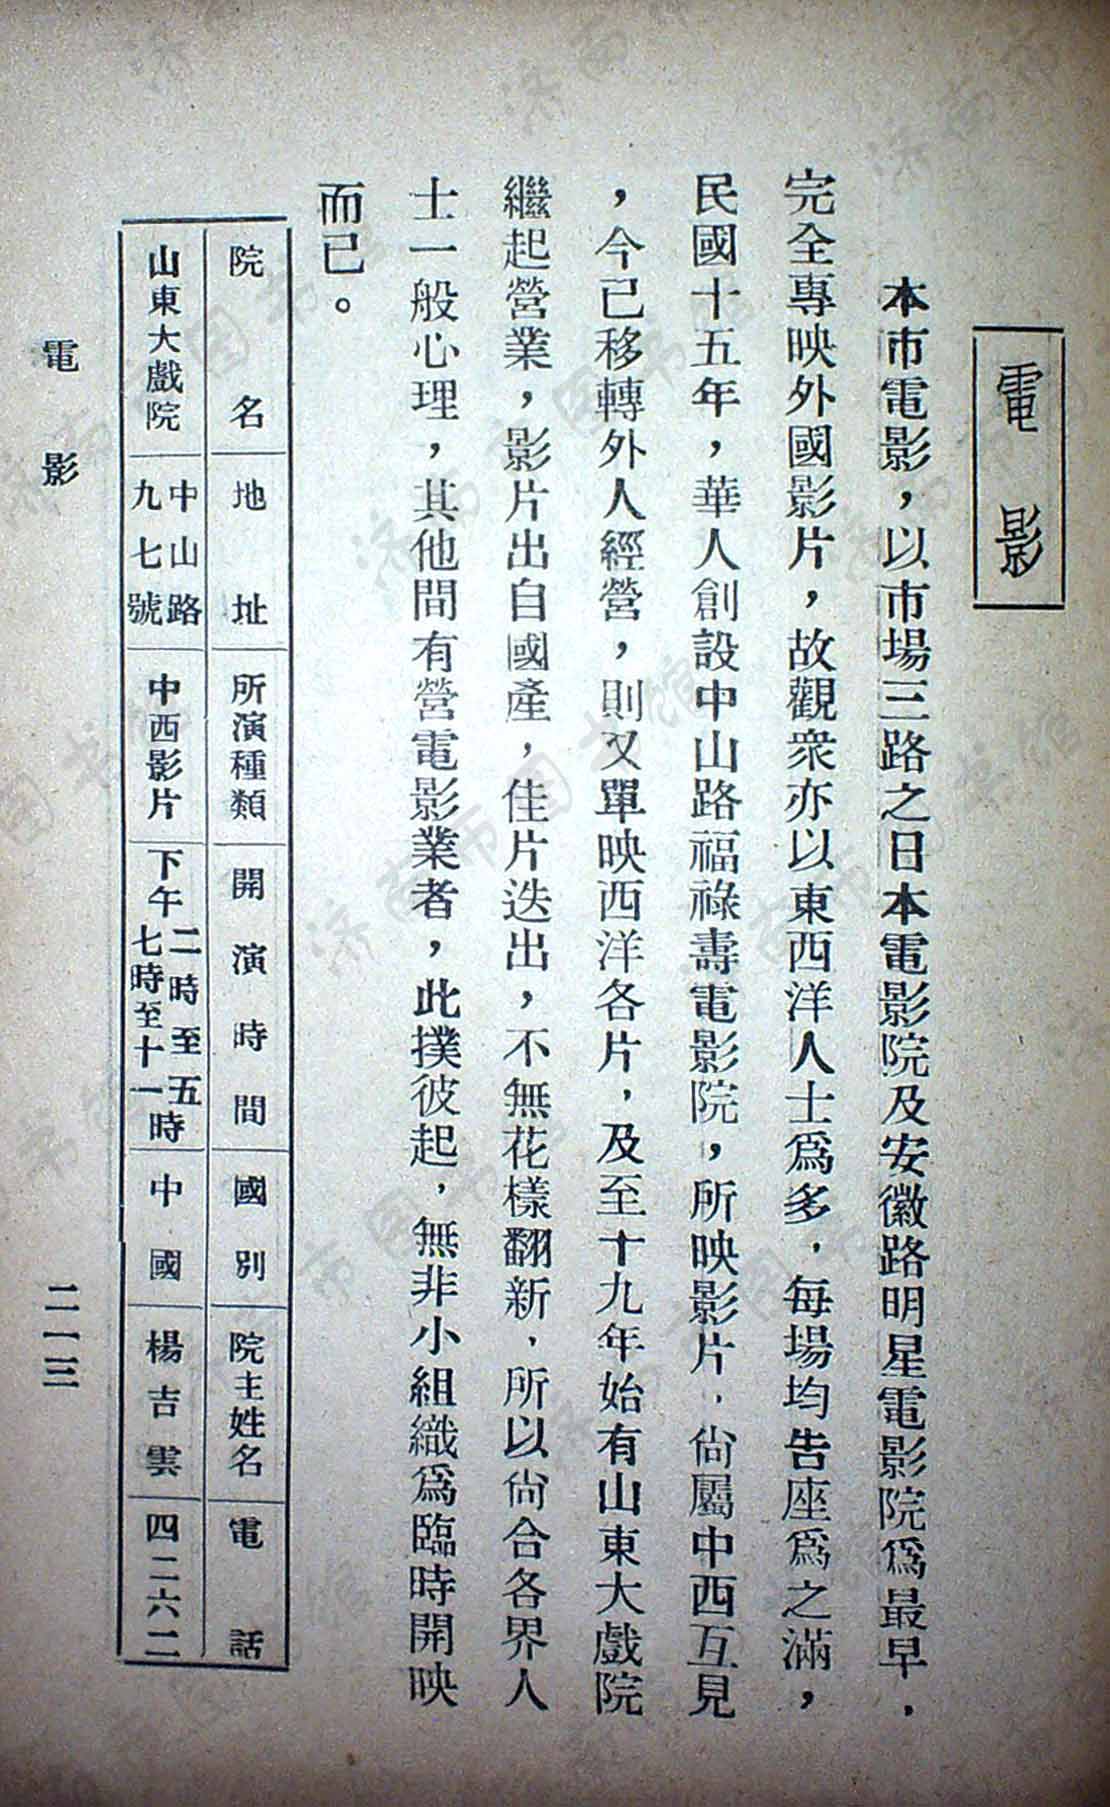 電影
本市電影，以市場三路之日本電影院及安徽路明星電影院爲最早，
完全專映外國影片，故觀衆亦以東西洋人士爲多，每場均告座爲之滿，
民國十五年，華人創設中山路福祿壽電影院，所映影片，尙屬中西互見
，今已移轉外人經營，則又單映西洋各片，及至十九年始有山東大戲院
繼起營業，影片出自國產，佳片迭出，不無花樣翻新，所以尙合各界人
士一般心理，其他間有營電影業者，此撲彼起，無非小組織爲臨時開映
而已。
院名 地址 所演種類 開演時間 國別 院主姓名 電話
山東大戲院 中山路九七號 中西影片 下午二時至五時七時至十一時 中國 楊吉雲 四二六二
電影 二一三
济南市图书馆